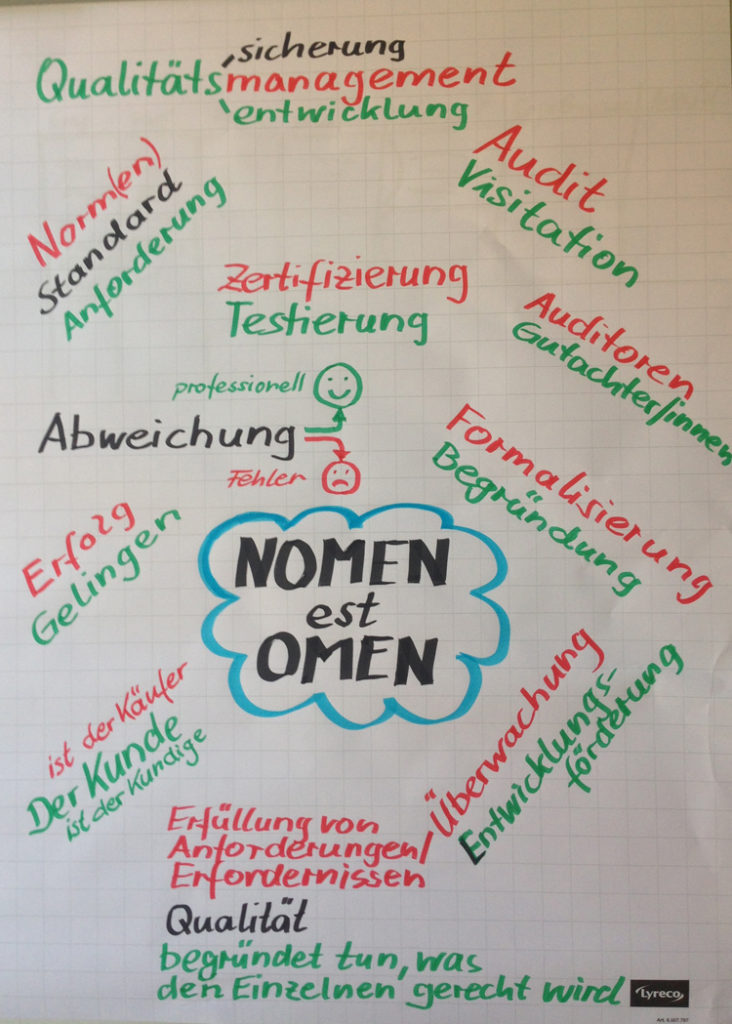 sicherung
Qualitätsmanagement
entwicklung
Audit
Visitation
Norm(en)
Standard
Anforderung
Zertifizierung
Testierung
Auditoren
Gutachter/innen
professionell
Abweichung
Fehler
Formalisierung
Begründung
Erfolg
Gelingen
NOMEN
est
OMEN
ist der Käufer
Der Kunde
ist der Kundige
Überwachung
Entwicklungs-
förderung
Erfüllung von
Anforderungen/
Erfordernissen
Qualität
begründet tun, was
den Einzelnen gerecht wird
Lyreco